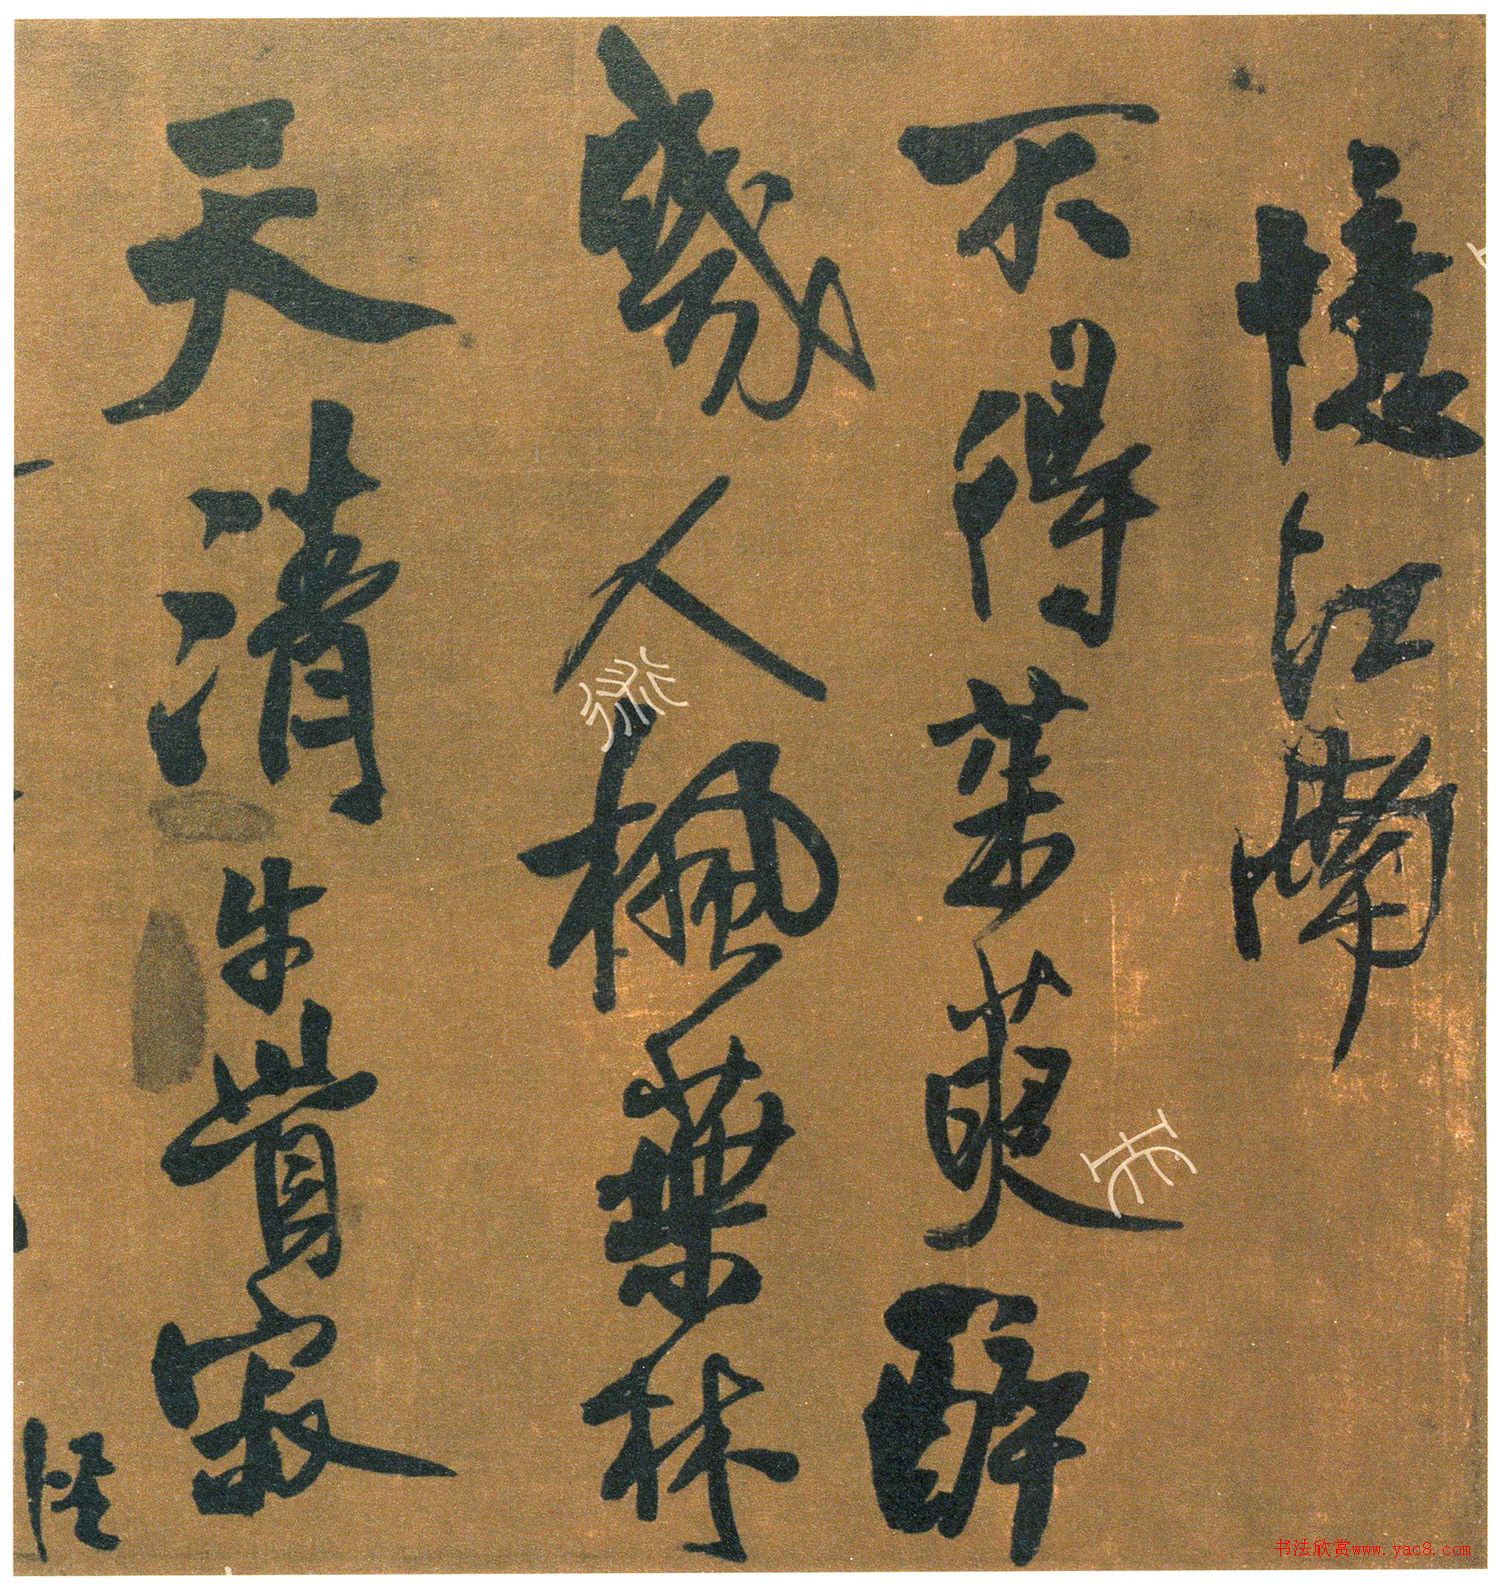 憶江南
不得茱萸醉
幾人楓葉林
天清牛首寂
书法欣赏www.yac8.com